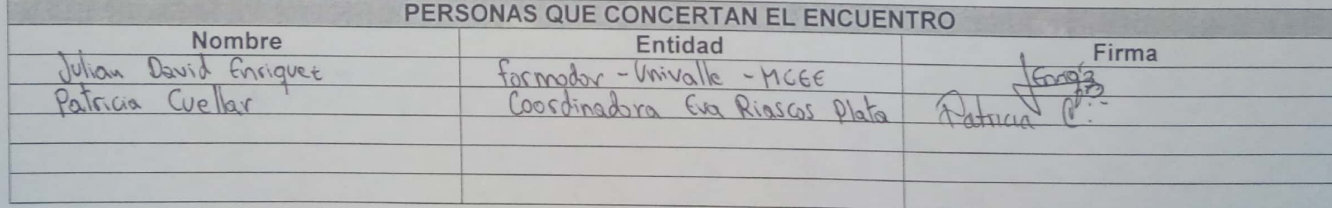 PERSONAS QUE CONCERTAN EL ENCUENTRO
Nombre Entidad Firma
Julian David Enriquez formador - Univalle - MCEE
Patricia Cuellar Coordinadora Eva Riascos Plata Patricia C.